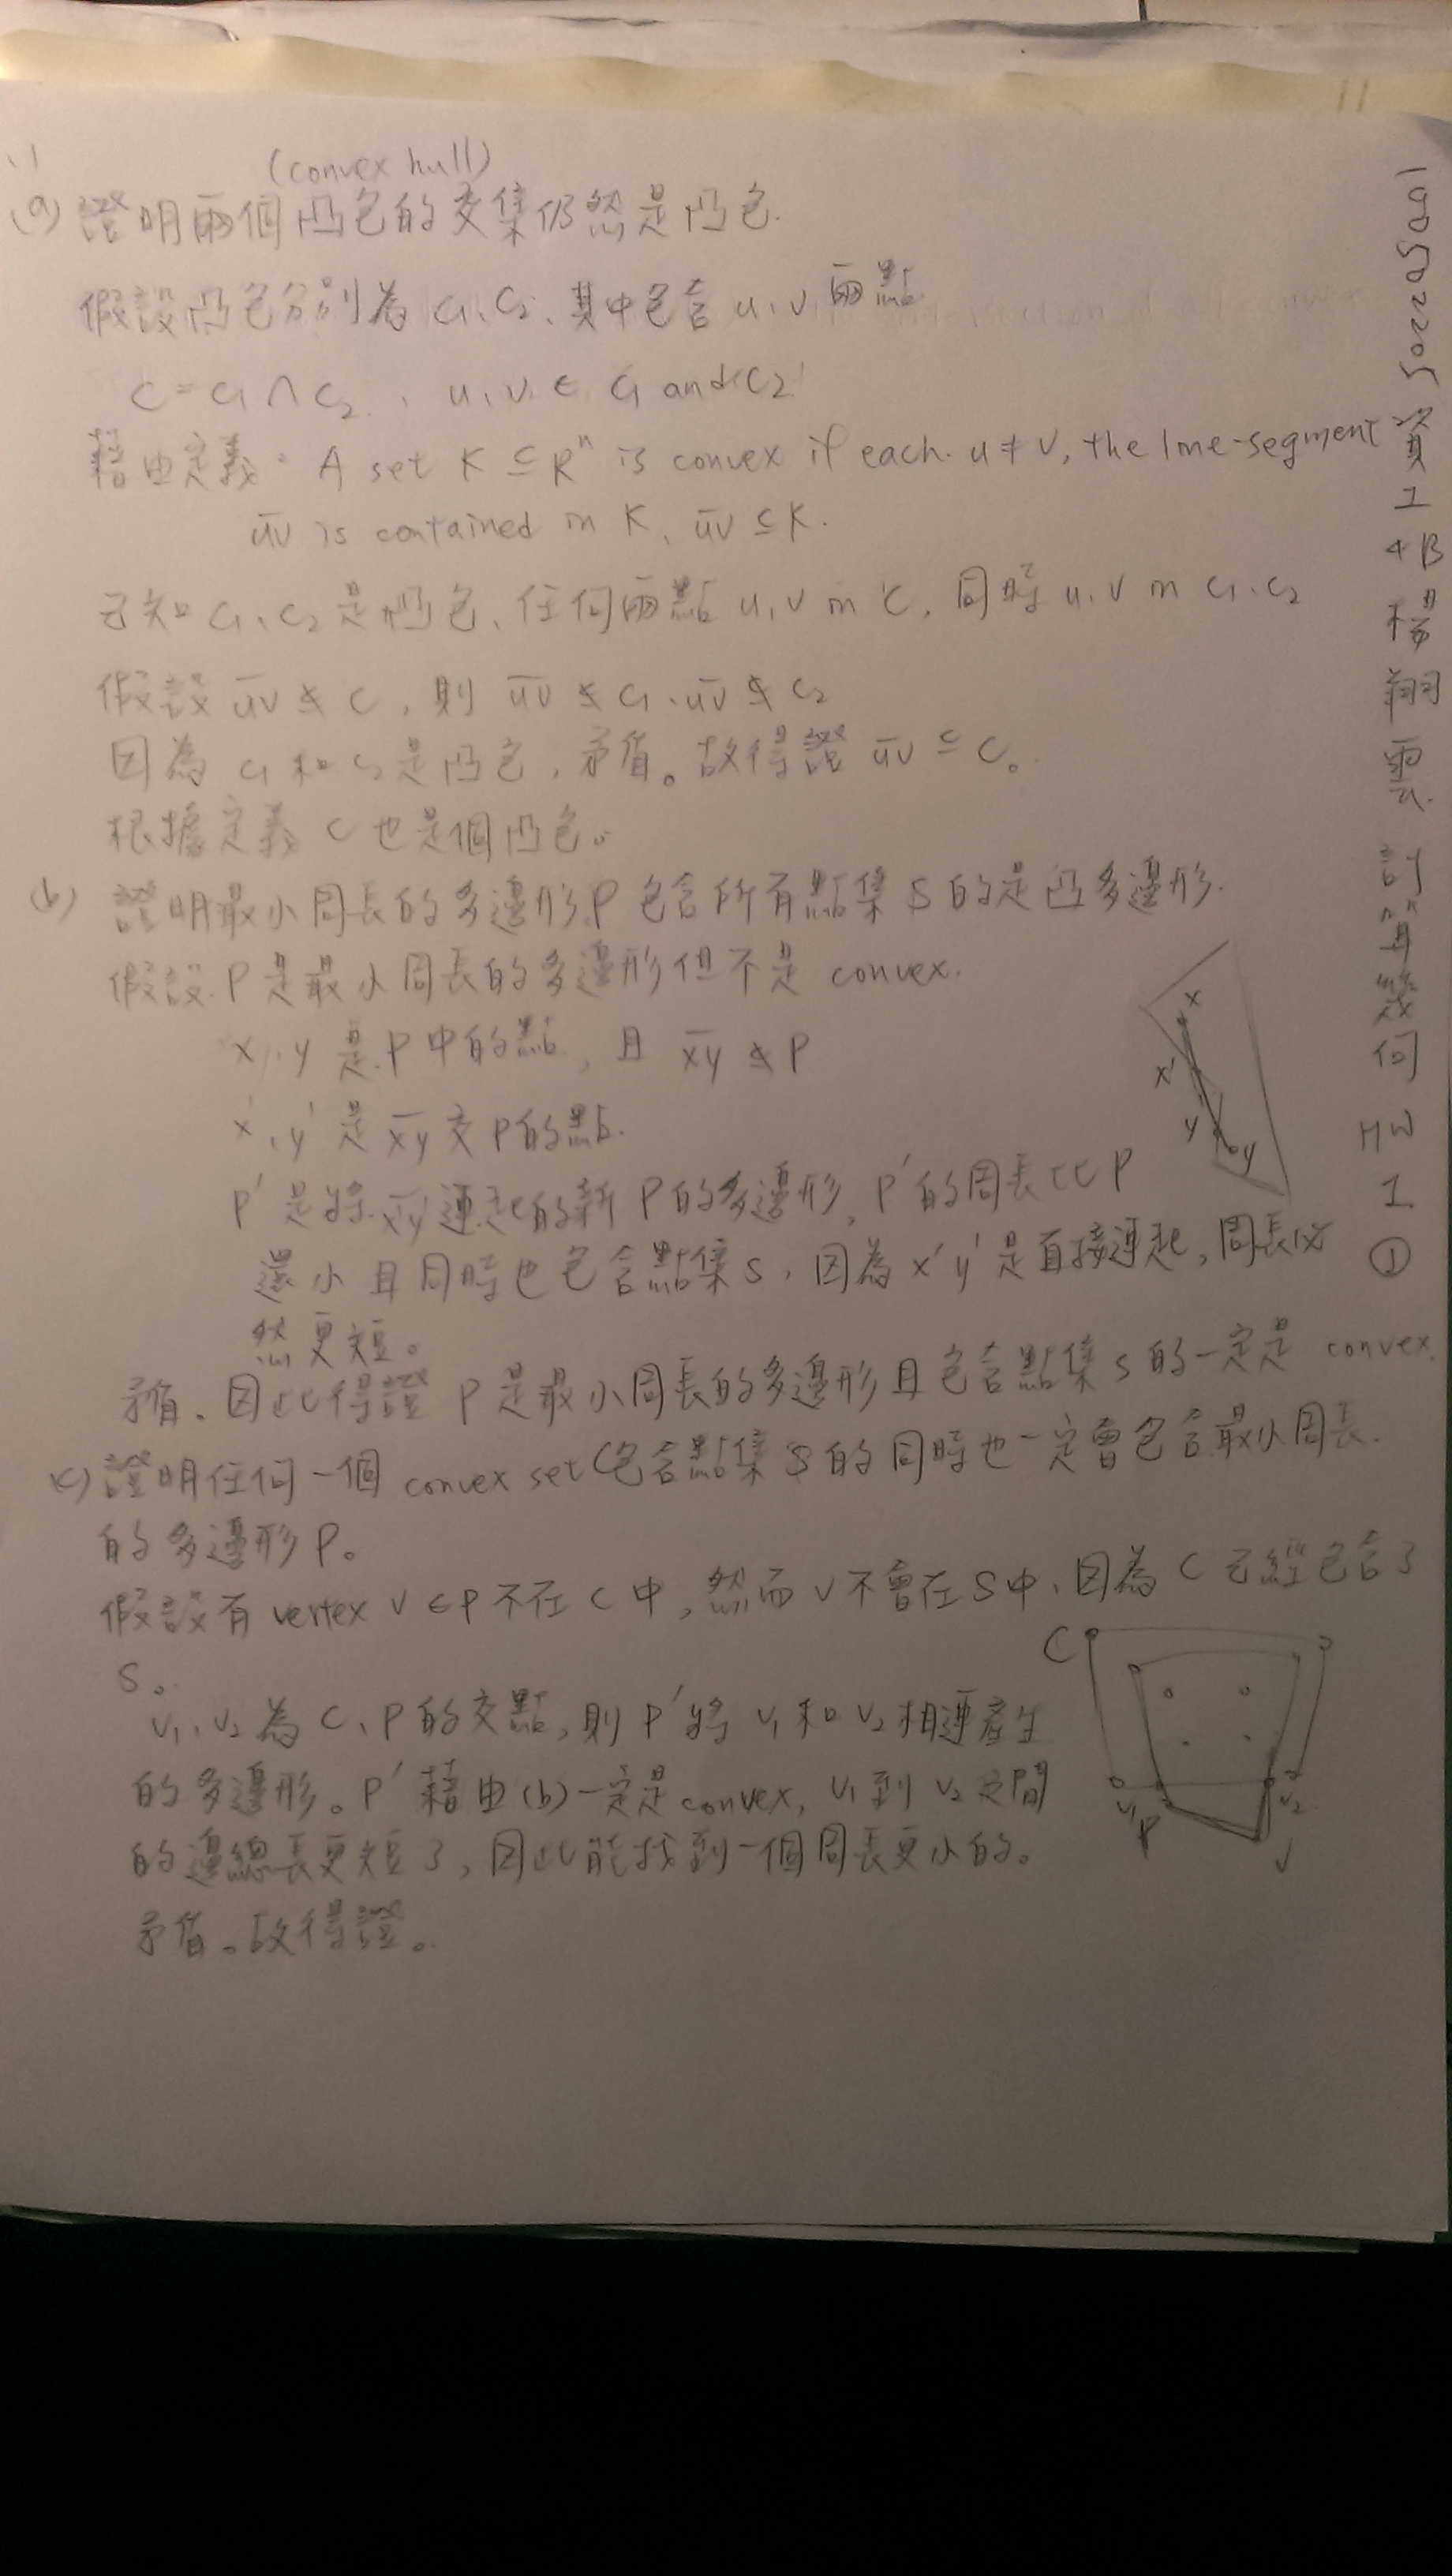 11
(convex hull)
(a) 證明兩個凸包的交集仍然是凸包.
假設凸包分別為 C1、C2、其中包含 u,v 兩點
C = C1 ∩ C2 , u,v ∈ C1 and C2
藉由定義: A set K ⊆ R^n is convex if each u ≠ v, the line-segment
u̅v̅ is contained in K, u̅v̅ ⊆ K.
已知 C1、C2 是凸包、任何兩點 u,v in C, 同時 u,v in C1、C2
假設 u̅v̅ ⊈ C, 則 u̅v̅ ⊈ C1、u̅v̅ ⊈ C2
因為 C1 和 C2 是凸包,矛盾。故得證 u̅v̅ ⊆ C。
根據定義 C 也是個凸包。
(b) 證明最小周長的多邊形 P 包含所有點集 S 的是凸多邊形.
假設 P 是最小周長的多邊形但不是 convex.
x, y 是 P 中的點, 且 x̅y̅ ⊈ P
x', y' 是 x̅y̅ 交 P 的點.
P' 是將 x̅y̅' 連起的新 P 的多邊形, P' 的周長比 P
還小且同時也包含點集 S, 因為 x'y' 是直接連起, 周長必
然更短。
矛盾. 因此得證 P 是最小周長的多邊形且包含點集 S 的一定是 convex.
(c) 證明任何一個 convex set C 包含點集 S 的同時也一定會包含最小周長
的多邊形 P。
假設有 vertex v ∈ P 不在 C 中, 然而 v 不會在 S 中, 因為 C 已經包含了
S。
v1, v2 為 C、P 的交點, 則 P' 將 v1 和 v2 相連產生
的多邊形。P' 藉由 (b) 一定是 convex, v1 到 v2 之間
的邊總長更短了, 因此能找到一個周長更小的。
矛盾。故得證。
x
x'
y'
y
C
v1
P
v2
v
資工4B
楊翔雲
計算幾何
HW1
①